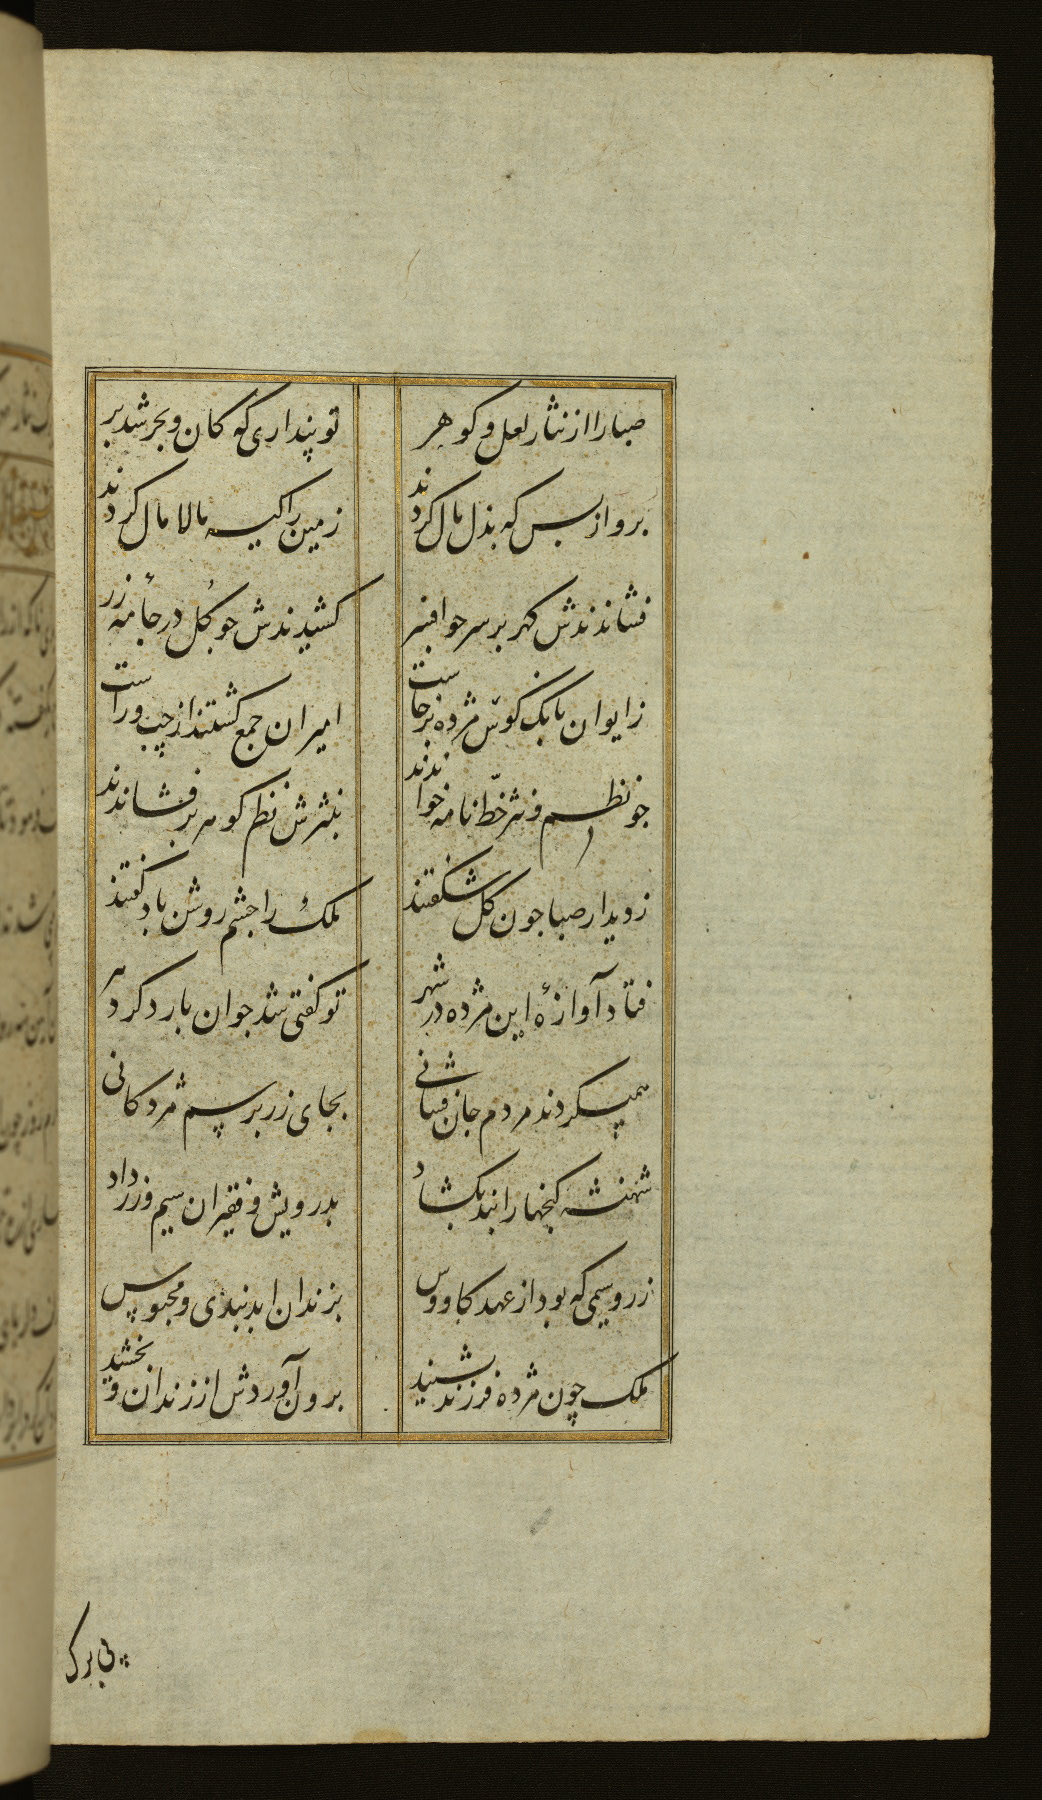 صبا را از نثار لعل و کوهر تو پنداری که کان و بحر شد بر
برو از بس که بذل مال کردند زمین را کیسه مالا مال کردند
فشاندندش کهر بر سر جو افسر کشیدندش جو کل در جامهٔ زر
ز ایوان بانک کوس مژده برخاست امیران جمع کشتند از چپ و راست
جو نظم و نثر خطّ نامه خواندند بنثرش نظم کوهر برفشاندند
ز دیدار صبا جون کل شکفتند ملک را جشم روشن باد کفتند
فتاد آوازهٔ این مژده در شهر تو کفتی شد جوان بار دکر دهر
همیکردند مردم جان فشانی بجای زر برسم مژدکانی
شهنشه کنجها را بند بکشاد بدرویش و فقیران سیم و زر داد
زر و سیمی که بود از عهد کاووس بزندان ابد بندی و محبوس
ملک چون مژده فرزند بشنید برون آوردش از زندان و بخشید
پی برک